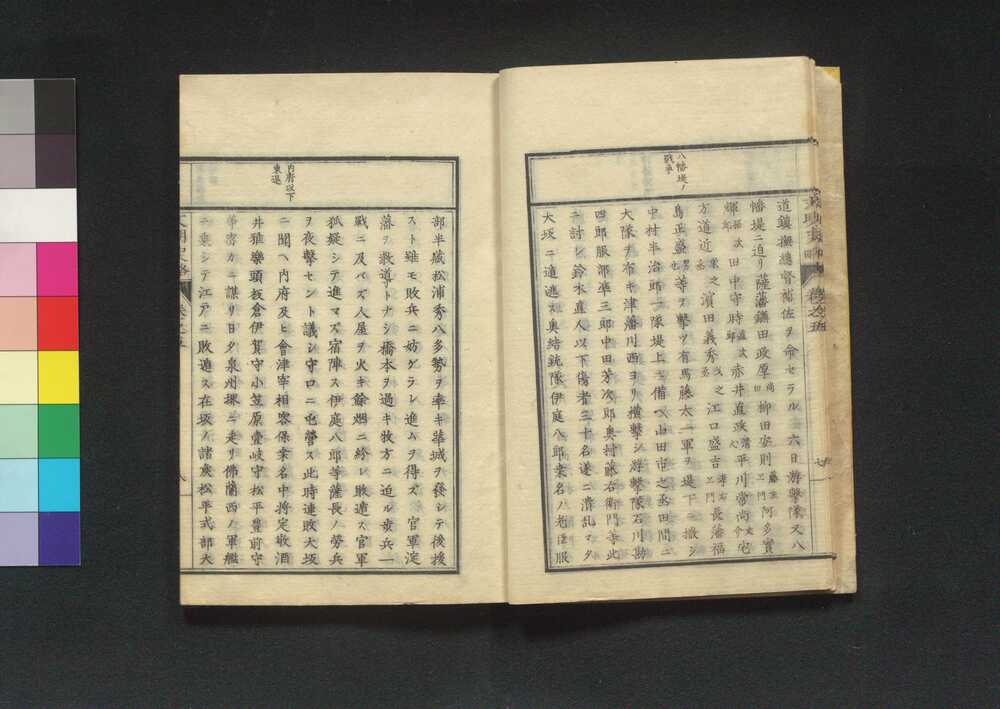 八幡堤ノ
戦争
道鎮撫總督補佐ヲ命セラル 六日游撃隊又八
幡堤ニ迫リ薩藩鎌田政厚 柳田安則 阿多實
輝 田中守時 赤井直 平川常尚
方道近 濱田義秀 江口盛吉 長藩福
島正盛 等ヲ撃ツ有馬藤太一軍ヲ堤下ニ撒シ
中村半治郎一隊堤上ニ備ヘ山田市之丞田間ニ
大隊ヲ布キ津藩川西ヨリ横撃シ游撃隊石川勘
四郎服部準三郎中田芳次郎奥村藤右衛門等此
ニ討レ鈴木直人以下傷者三十名遂ニ潰乱マタ
大坂ニ遁逃ス奥詰銃隊伊庭八郎桒名ノ老臣服
内府以下
東退
部半蔵松浦秀八多勢ヲ率キ華城ヲ發シテ後援
スト雖モ敗兵ニ妨ゲラレ進ムヲ得ズ 官軍淀
藩ヲ嚮道トナシ橋本ヲ過キ牧方ニ迫ル東兵一
戦ニ及バズ人屋ヲ火キ餘烟ニ紛レ敗遁ス官軍
狐疑シテ進マズ宿陣ス伊庭八郎等薩長ノ勞兵
ヲ夜撃セント議シ守口ニ屯營ス此時連敗大坂
ニ聞ヘ内府及ヒ會津宰相容保桒名中将定敬酒
井雅樂頭板倉伊賀守小笠原壹岐守松平豊前守
等密カニ謀リ日夕泉州堺ニ走リ佛蘭西ノ軍艦
ニ乗シテ江戸ニ敗遁ス在坂ノ諸矦松平式部大